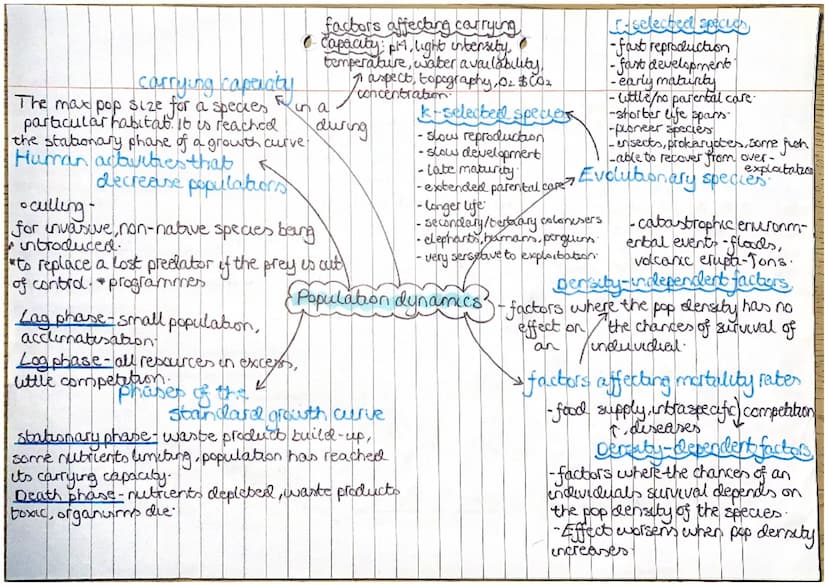 factors affecting carrying
capacity: pH, light intensity,
temperature, water availability,
aspect, topography, O₂ & CO₂
concentration.
carrying capacity
The max pop size for a species in a
particular habitat. It is reached during
the stationary phase of a growth curve.
Human activities that
decrease populations
culling -
for invasive, non-native species being
introduced.
to replace a lost predator if the prey is out
of control. * programmes
Lag phase - small population,
acclimatisation.
Log phase - all resources in excess,
little competition.
phases of the
standard growth curve
stationary phase - waste product build-up,
some nutrients limiting, population has reached
its carrying capacity.
Death phase - nutrients depleted, waste products
toxic, organisms die.
Population dynamics
k-selected species
- slow reproduction
- slow development
- late maturity
- extended parental care
- longer life
- secondary/tertiary colonisers
- elephants, humans, penguins
- very sensetive to exploitation.
r-selected species
- fast reproduction
- fast development
- early maturity
- little/no parental care
- shorter life spans
- pioneer species
- insects, prokaryotes, some fish
- able to recover from over-
exploitation
Evolutionary species.
- catastrophic environm-
ental events - floods,
volcanic erupta-ions.
Density-independent factors
- factors where the pop density has no
effect on the chances of survival of
an individual.
factors affecting mortality rates
- food supply, (intraspecific) competition
, diseases
Density-dependent factors
- factors where the chances of an
individuals survival depends on
the pop density of the species.
- Effect worsens when pop density
increases.